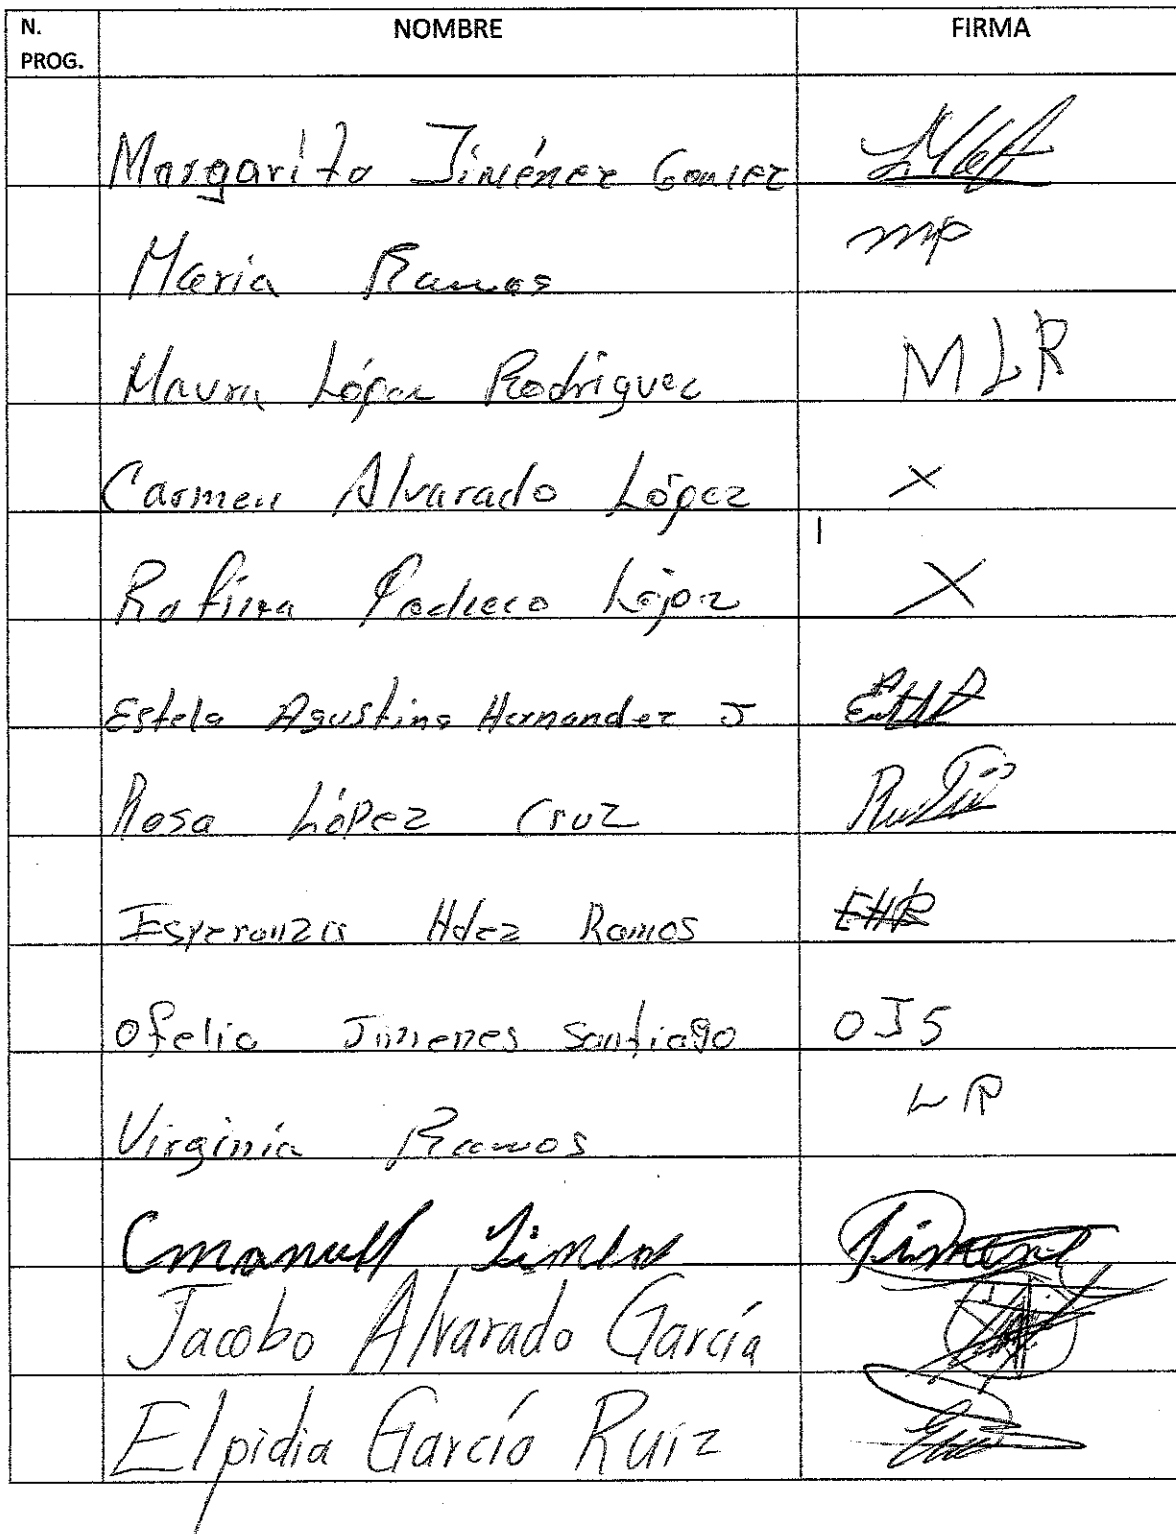 N. PROG. NOMBRE FIRMA
Margarito Jiménez
María Ramos mp
Maura López Rodriguez MLR
Carmen Alvarado López X
Pacheco López X
Estela Agustina Hernandez J
Rosa López Cruz
Esperanza Hdez Ramos EHR
Ofelia Jimenes Santiago OJS
Virginia Ramos LR
Jacobo Alvarado García
Elpidia García Ruiz